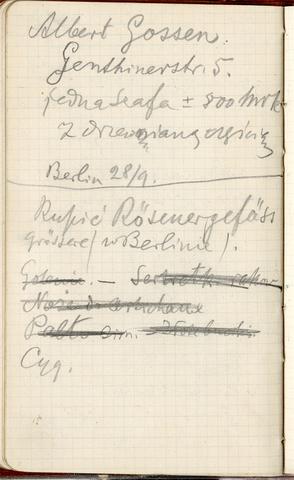 Albert Gossen.
Genthinerstr. 5.
jedna szafa ± 800 mrk
z drewnianą
Berlin 28/9.
Kupić Rösenergefäss
grössere (w Berlinie).
Golenie. —
Noże do
Palto zim.
Cyg.